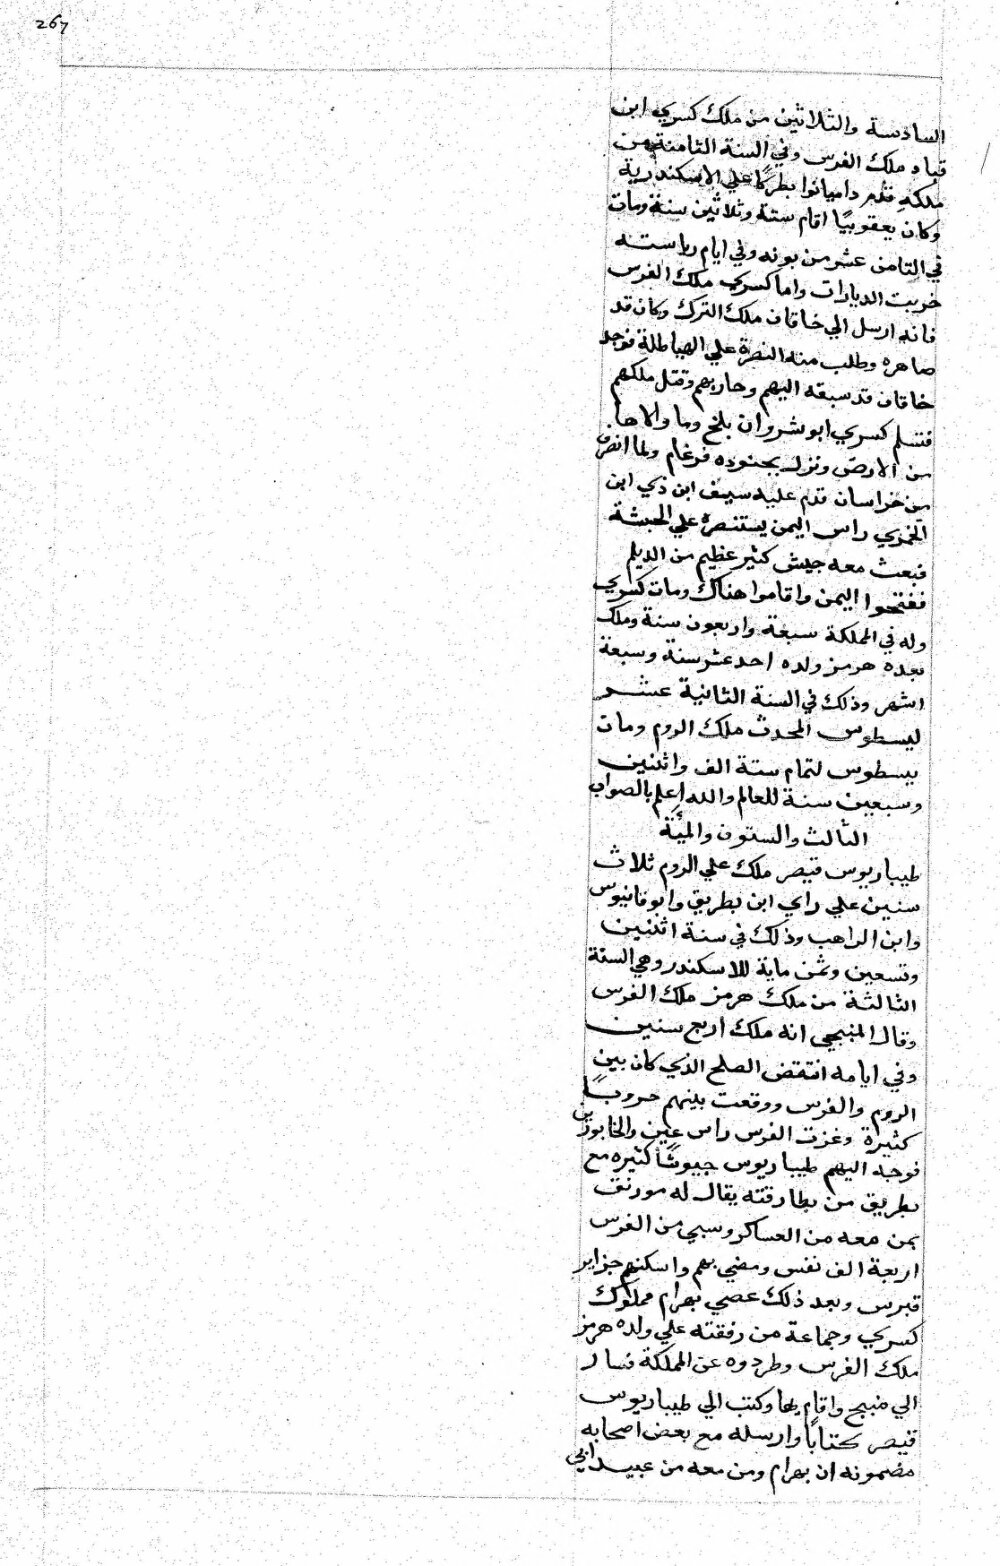 267
السادسة والثلاثين من ملك كسري ابن
قباد ملك الفرس وفي السنة الثامنة من
ملكه قدم داميانوا بطركا علي الاسكندرية
وكان يعقوبيًا اقام ستة وثلاثين سنة ومات
في الثامن عشر من بونه وفي ايام رياسته
خربت الديارات واما كسري ملك الفرس
فانه ارسل الي خاقان ملك الترك وكان قد
صاهره وطلب منه النصرة علي الهياطلة فوجد
خاقان قد سبقه اليهم وحاربهم وقتل ملكهم
فتسلم كسري ابوشروان بلخ وما والاها
من الارض ونزل بجنوده فرغام ولما انصرف
من خراسان قدم عليه سيف ابن ذي ابن
راس اليمن يستنصره علي الحبشة
فبعث معه جيش كثير عظيم من الديلم
ففتحوا اليمن واقاموا هناك ومات كسري
وله في المملكة سبعة واربعون سنة وملك
بعده هرمز ولده احد عشر سنة وسبعة
اشهر وذلك في السنة الثانية عشر
ليسطوس المحدث ملك الروم ومات
بيسطوس لتمام ستة الف واثنين
وسبعين سنة للعالم والله اعلم بالصواب
الثالث والستون والمئة
طيباريوس قيصر ملك علي الروم ثلاث
سنين علي راي ابن بطريق وابوفانيوس
وابن الراهب وذلك في سنة اثنين
وتسعين وثمن ماية للاسكندر وهي السنة
الثالثة من ملك هرمز ملك الفرس
وقال المنبجي انه ملك اربع سنين
وفي ايامه انتقض الصلح الذي كان بين
الروم والفرس ووقعت بينهم حروبًا
كثيرة وغزت الفرس راس عين والخابورين
فوجه اليهم طيباريوس جيوشًا كثيره مع
بطريق من بطارقته يقال له مورنق
بمن معه من العساكر وسبي من الفرس
اربعة الف نفس ومضي بهم واسكنهم جزاير
قبرس وبعد ذلك عصي بهرام مملوك
كسري وجماعة من رفقته علي ولده هرمز
ملك الفرس وطردوه عن المملكة فسار
الي منبج واقام بها وكتب الي طيباريوس
قيصر كتابًا وارسله مع بعض اصحابه
مضمونه ان بهرام ومن معه من عبيد ابي